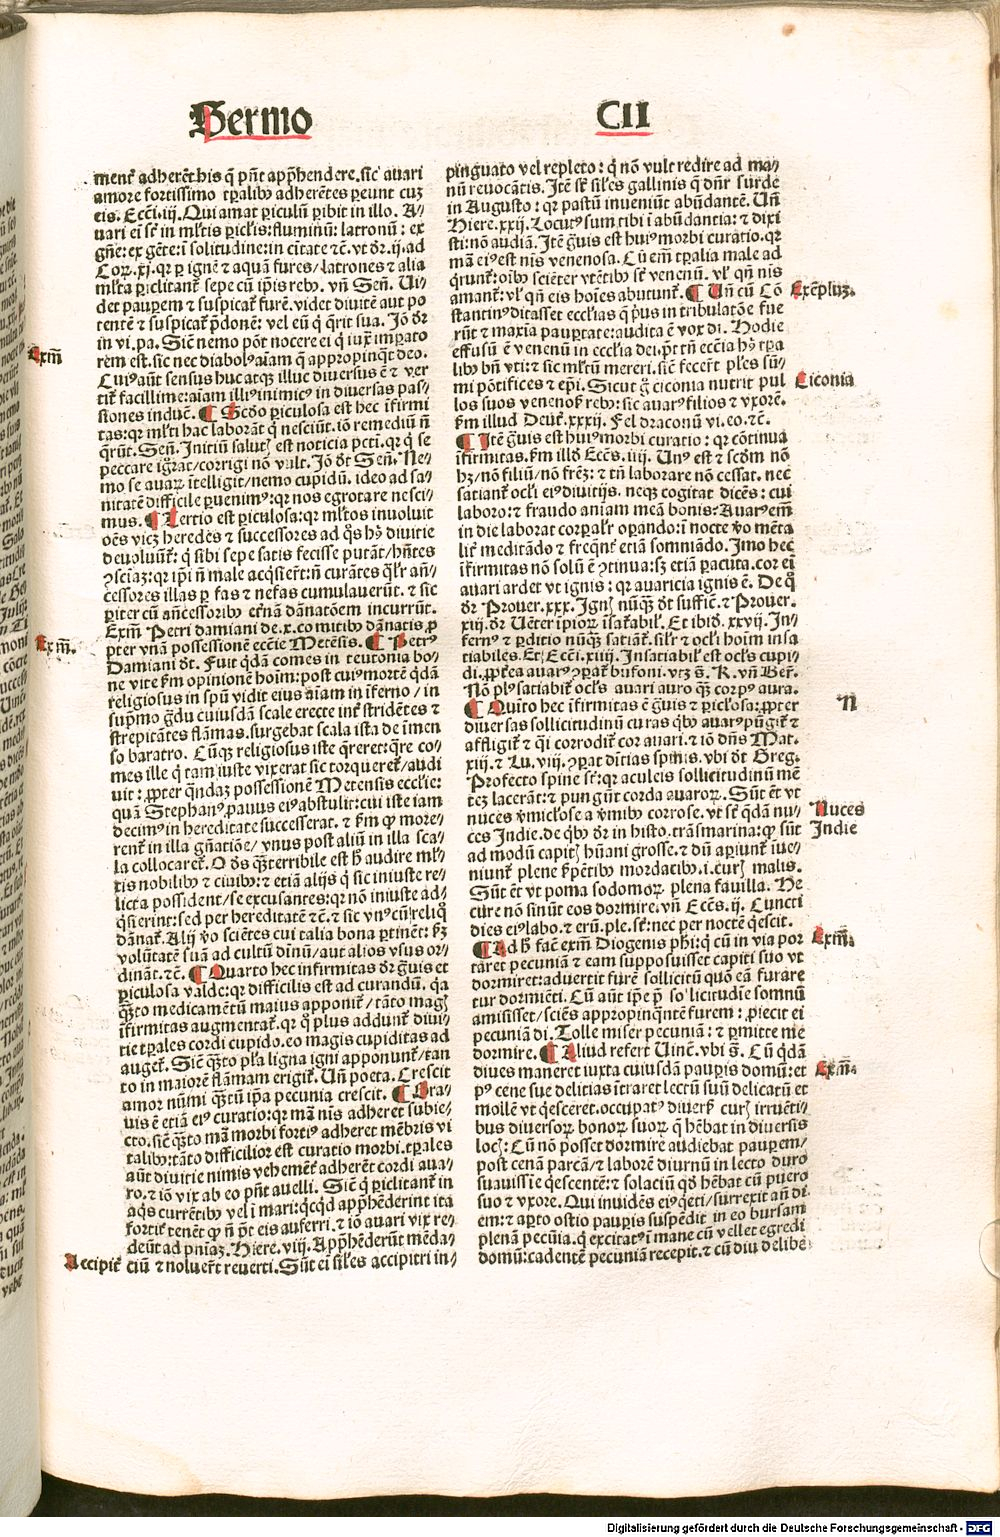 Sermo
CII
mentꝭ adherẽt his q̃ pñt apꝓhendere. sic̃ auari
amore fortissimo tꝑalibꝰ adherẽtes ꝑeunt cuꝫ
eis. Eccĩ. iij. Qui amat ꝑiculũ ꝑibit in illo. A⸗
uari ei sr̃ in ml̃tis ꝑicl̃is: fluminũ: latronũ: ex
gñe: ex gẽte: ĩ solitudine: in ciũtate ⁊c̃. vt dr̃. ij. ad
Coꝝ. xi. qꝛ ꝑ ignẽ ⁊ aquã fures/ latrones ⁊ alia
ml̃ta ꝑiclitantꝭ sepe cũ ip̃is rebꝰ. vñ Señ. Ui⸗
det pauꝑem ⁊ suspicat̃ furẽ. videt diuitẽ aut po
tentẽ ⁊ suspicat̃ p̃donẽ: vel eũ q̃ q̃rit sua. Jõ dr̃
in vi. pa. Sic̃ nemo põt nocere ei q̃ iux̃ imꝑato
rẽm est. sic nec diabolꝰ aĩam q̃ appropinq̃t deo.
Cuiꝰ aũt sensus huc atqꝫ illuc diuersus ẽ ⁊ ver
titꝭ facillime: aĩam illiꝰ inimicꝰ in diuersas pas⸗
siones inducit. ¶ Scðo ꝑiculosa est hec ĩfirmi
tas: qꝛ ml̃ti hac laborãt q̃ nesciũt. iõ remediũ ñ
q̃rũt. Señ. Jnitiũ salutꝭ est noticia pcti. qꝛ q̃ se
peccare ignorat/ corrigi nõ vult. Jõ dt̃ Señ. Ne⸗
mo se auaꝝ ĩtelligit/ nemo cupidũ. ideo ad sa⸗
nitatẽ difficile ꝑuenimꝰ: qꝛ nos egrotare nesci⸗
mus. ¶ Tertio est ꝑiculosa: qꝛ ml̃tos inuoluit
oẽs vicꝫ heredes ⁊ successores ad q̃s hꝰ diuitie
deuoluũt̃: q̃ sibi sepe satis fecisse putãt/ hñtes
ꝯsciaꝫ: qꝛ ip̃i ñ male acq̃sierũt: ñ curãtes q̃lr̃ añ⸗
cessores illas ꝑ fas ⁊ nefas cumulauerũt. ⁊ sic
ꝑiter cũ añcessoribꝰ et̃nã dãnatõem incurrũt.
Exm̃ Petri damiani de. x. comitibꝰ dãnatis. ꝓ
pter vnã possessionẽ ecc̃ie Metẽsis. ¶ Petrꝰ
Damiani dt̃. Fuit qdã comes in teutonia bo⸗
ne vite ẜm opinionẽ hoĩm: post cuiꝰ mortẽ qdã
religiosus in spũ vidit eius aĩam in ĩferno/ in
sup̃mo g̃du cuiusdã scale erecte intꝭ stridẽtes ⁊
strepitãtes flãmas. surgebat scala ista de ĩmen
so baratro. Cũqꝫ religiosus iste q̃reret: q̃re co⸗
mes ille q̃ tam iuste vixerat sic torqueretꝭ/ audi
uit: ꝓpter q̃ndaꝫ possessionẽ Metensis eccl̃ie:
quã Stephanꝰ ꝓauus eiꝰ abstulit: cui iste iam
decimꝰ in hereditate successerat. ⁊ ẜm ꝙ more⸗
rentꝭ in illa gñatiõe/ vnus post aliũ in illa sca⸗
la collocaretꝭ. O ds̃ q̃ꝫ terribile est h̃ audire ml̃⸗
tis nobilibꝰ ⁊ ciuibꝰ: ⁊ etiã alijs q̃ sic iniuste re⸗
licta possident/ se excusantes: qꝛ nõ iniuste ad⸗
q̃sierint: sed per hereditatẽ ⁊c̃. ⁊ sic vnꝰ cũ reliq̃
dãnatꝭ. Alij ṽo sciẽtes cui talia bona ꝑtinẽt: ẜꝫ
volũtatẽ suã ad cultũ diñu/ aut alios vsus or⸗
dinãt. ⁊c̃. ¶ Quarto hec infirmitas dr̃ g̃uis et
ꝑiculosa valde: qꝛ difficilis est ad curandũ. q̃a
q̃ꝫto medicamẽtũ maius apponitꝭ/ tãto magꝭ
ĩfirmitas augmentatꝭ. qꝛ q̃ plus adduntꝭ diui⸗
tie tꝑales cordi cupido. eo magis cupiditas ad
augetꝭ. Sic̃ q̃ꝫto pl̃a ligna igni apponuntꝭ/ tan
to in maiorẽ flãmam erigitꝭ. Uñ poeta. Crescit
amor nũmi q̃ꝫtũ ip̃a pecunia crescit. ¶ Gra⸗
uis ẽ etiã eiꝰ curatio: qꝛ mã nis adheret subie⸗
cto. sic̃ q̃ꝫto mã morbi fortiꝰ adheret mẽbris vi
talibꝰ: tãto difficilior est curatio morbi. tꝑales
aũt diuitie nimis vehemẽtꝭ adherẽt cordi aua⸗
ro. ⁊ iõ vix ab eo pñt auelli. Sic̃ q̃ ꝑiclitantꝭ in
aq̃s currẽtibꝰ vel ĩ mari: q̃cq̃d apꝓhẽderint ita
fortitꝭ tenẽt ꝙ ñ p̃t eis auferri. ⁊ iõ auari vix re⸗
deũt ad pñiaꝫ. Hiere. viij. Apꝓhẽderũt mẽda⸗
ciũ ⁊ noluer̃t reuerti. Sũt ei sil̃es accipitri in⸗
Exm̃
Exm̃.
Accipitꝭ
pinguato vel repleto: q̃ nõ vult redire ad ma⸗
nũ reuocãtis. Jtẽ sr̃ sil̃es gallinis q̃ dñr surde
in Augusto: qꝛ pastũ inueniũt abũdantẽ. Uñ
Hiere. xxij. Locutꝰ sum tibi ĩ abũdantia: ⁊ dixi
sti: nõ audiã. Jtẽ g̃uis est huiꝰ morbi curatio. qꝛ
mã eiꝰ est nis venenosa. Cũ em̃ tꝑalia male ad
q̃runtꝭ: oĩbꝰ sciẽter vtẽtibꝰ sr̃ venenũ. vl̃ qñ nis
amantꝭ: vl̃ qñ eis hoĩes abutuntꝭ. ¶ Uñ cũ Cõ
stantinꝰ ditasset eccl̃ias q̃ pꝰus in tribulatõe fue
rũt ⁊ maxĩa pauꝑtate: audita ẽ vox di. Hodie
effusũ ẽ venenũ in eccl̃ia dei. p̃t tñ ecc̃ia hꝰ tꝑa
libꝰ bñ vti: ⁊ sic ml̃tũ mereri. sic̃ fecer̃t pl̃es sũ⸗
mi põtifices ⁊ ep̃i. Sicut g̃ ciconia nutrit pul
los suos venenoſ rebꝰ: sic auarꝰ filios ⁊ vxorẽ.
ẜm illud Deut̃. xxxij. Fel draconũ vi. eo. ⁊c̃.
¶ Jtẽ g̃uis est huiꝰ morbi curatio: qꝛ cõtinua
ĩfirmitas. ẜm illð Ecc̃s. iiij. Unꝰ est ⁊ scðm nõ
hꝫ/ nõ filiũ/ nõ fr̃eꝫ: ⁊ tñ laborare nõ cessat. nec
satiantꝭ ocl̃i eiꝰ diuitijs. neqꝫ cogitat dicẽs: cui
laboro: ⁊ fraudo aniam meã bonis. Auarꝰ em̃
in die laborat corꝑalr̃ oꝑando: ĩ nocte ṽo mẽta
litꝭ meditãdo ⁊ freq̃ntꝭ etiã somniãdo. Jmo hec
ĩfirmitas nõ solũ ẽ ꝯtinua: sꝫ etiã ꝑacuta. cor ei᷒
auari ardet vt ignis: qꝛ auaricia ignis ẽ. De q̃
dr̃ Prouer. xxx. Jgnꝭ nũq̃ꝫ dt̃ suffic̃. ⁊ Prouer.
xiij. dr̃ Uẽter ip̃ioꝝ ĩsat̃abilꝭ. Et ibið. xxvij. Jn⸗
fernꝰ ⁊ ꝑditio nũq̃ꝫ satiãtꝭ. sil̃r ⁊ ocl̃i hoĩm insa
tiabiles. Et Ecc̃i. xiiij. Jnsatiabilꝭ est ocl̃s cupi⸗
di. ꝓpt̃ea auarꝰ ꝯꝑatꝭ bufoni. vtꝫ s̃. R. vñ Ber̃.
Nõ plꝰ satiabitꝭ ocl̃s auari auro q̃ꝫ corpꝰ aura.
¶ Quĩto hec ĩfirmitas ẽ g̃uis ⁊ ꝑicl̃osa: ꝓpter
diuersas sollicitudinũ curas q̃bꝰ auarꝰ pũgitꝭ ⁊
affligitꝭ ⁊ q̃i corroditꝭ cor auari. ⁊ iõ dñs Mat.
xiij. ⁊ Lu. viij. ꝯꝑat diuitias spinis. vbi dt̃ Greg.
Profecto spine st̃: qꝛ aculeis sollicitudinũ mẽ
teꝫ lacerãt: ⁊ pungũt corda auaroꝝ. Sũt ẽt vt
nuces ṽmiclose a ṽmibꝰ corrose. vt sr̃ q̃dã nu⸗
ces Jndie. de q̃bꝰ dr̃ in histo. trãsmarina: ꝙ sũt
ad modũ capitꝭ hũani grosse. ⁊ dũ aꝑiuntꝭ iue⸗
niuntꝭ plene ẜpẽtibꝰ mordacibꝰ. i. curꝭ malis.
Sũt ẽt vt poma sodomoꝝ plena fauilla. He
cure nõ sinũt eos dormire. vñ Ecc̃s. ij. Cuncti
dies eiꝰ labo. ⁊ erũ. ple. sr̃: nec per noctẽ q̃escit.
¶ Ad h̃ fac̃ exm̃ Diogenis ph̃i: q̃ cũ in via por
taret pecuniã ⁊ eam supposuisset capiti suo vt
dormiret: aduertit furẽ sollicitũ quõ eã furare
tur dormiẽti. Cũ aũt ip̃e p̃ sollicitudie somnũ
amisisset/ sciẽs appropinq̃ntẽ furem: ꝓiecit ei
pecuniã di. Tolle miser pecuniã: ⁊ ꝑmitte me
dormire. ¶ Aliud refert Uinc̃. vbi s̃. Cũ qdã
diues maneret iuxta cuiusdã pauꝑis domũ: et
pꝰ cene sue delitias ĩtraret lectũ suũ delicatũ et
mollẽ vt q̃esceret. occupatꝰ diuerẜ curꝭ irruẽti⸗
bus diuersoꝝ bonoꝝ suoꝝ q̃ hẽbat in diuersis
locꝭ: Cũ nõ posset dormire audiebat pauꝑem/
post cenã parcã/ ⁊ laborẽ diurnũ in lecto duro
suauissie q̃escentẽ: ⁊ solaciũ qð hẽbat cũ puero
suo ⁊ vxore. Qui inuidẽs eiꝰ q̃eti/ surrexit añ di
em: ⁊ aꝑto ostio pauꝑis suspẽdit in eo bursam
plenã pecũia. q̃ excitatꝰ ĩ mane cũ vellet egredi
domũ: cadentẽ pecuniã recepit. ⁊ cũ diu delibe⸗
Exẽpluꝫ.
Ciconia
N
Nuces
Jndie
Exm̃.
Exm̃.
Digitalisierung gefördert durch die Deutsche Forschungsgemeinschaft - DFG